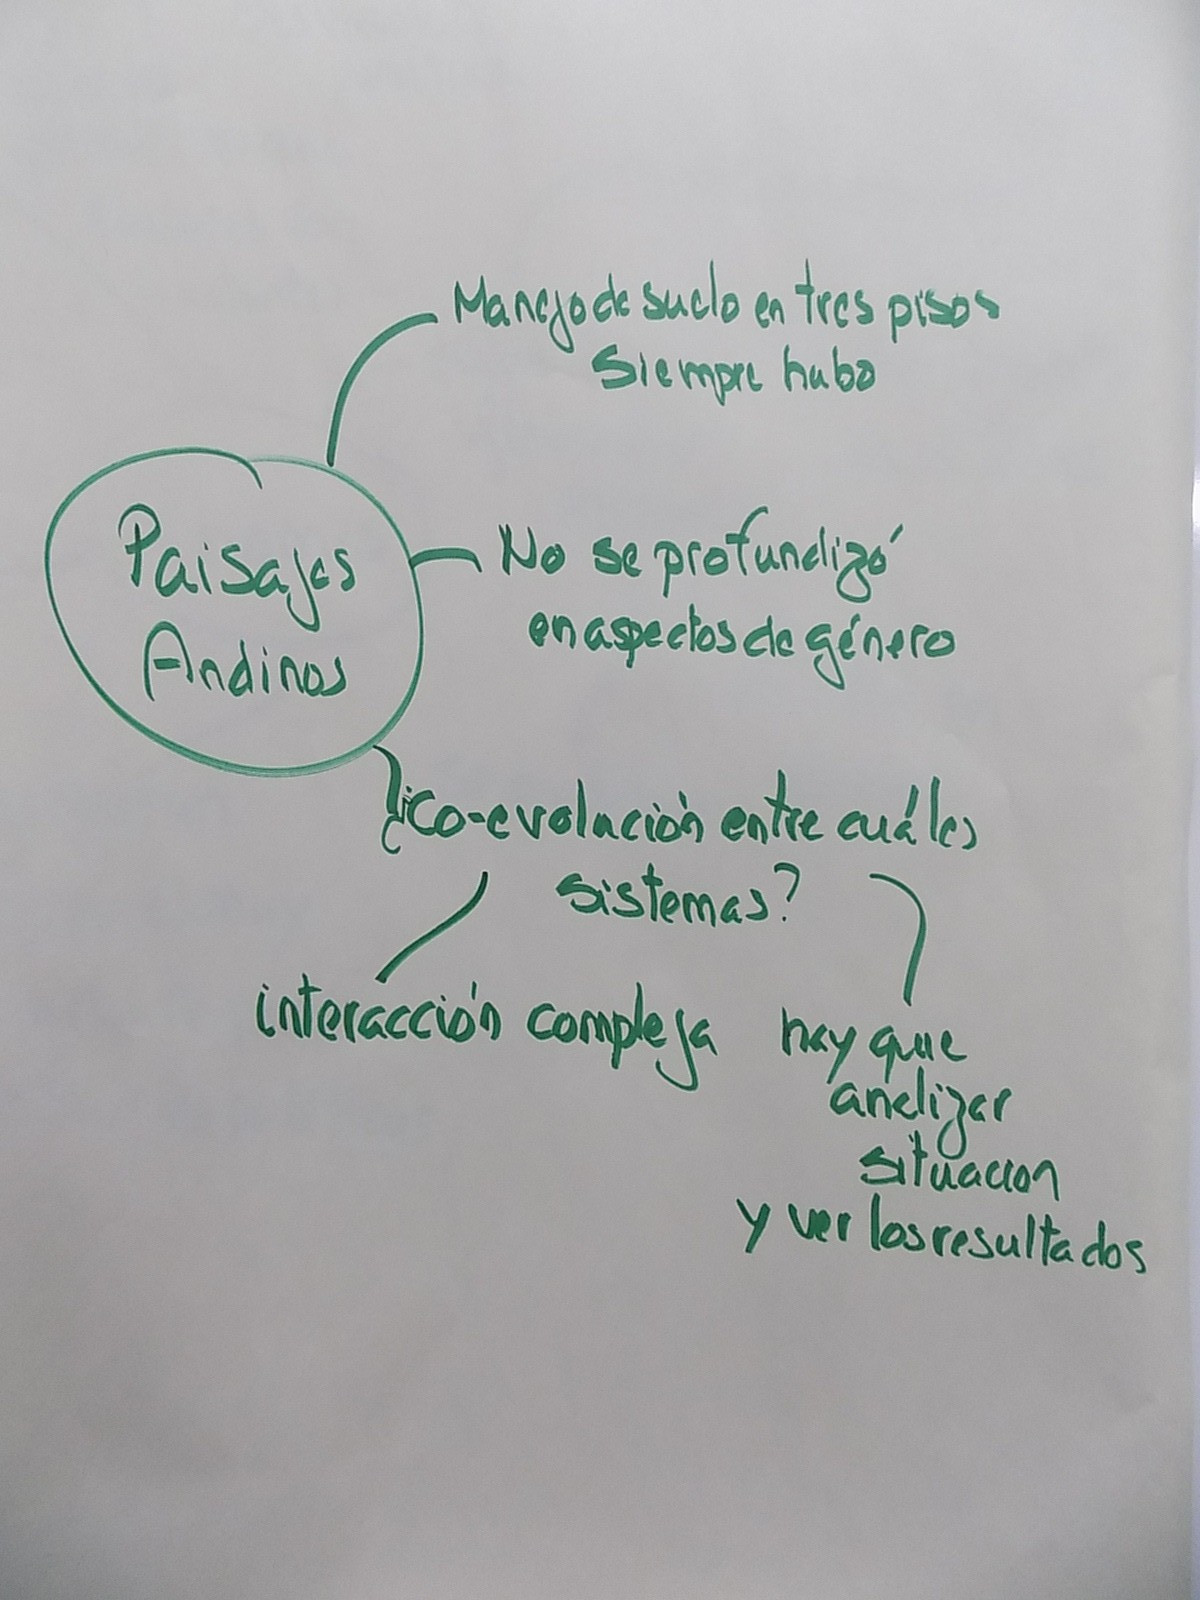 Manejo de suelo en tres pisos
Siempre hubo
Paisajes
Andinos
No se profundizó
en aspectos de género
¿co-evolución entre cuáles
sistemas?
interacción compleja
hay que
analizar
situacion
y ver los resultados